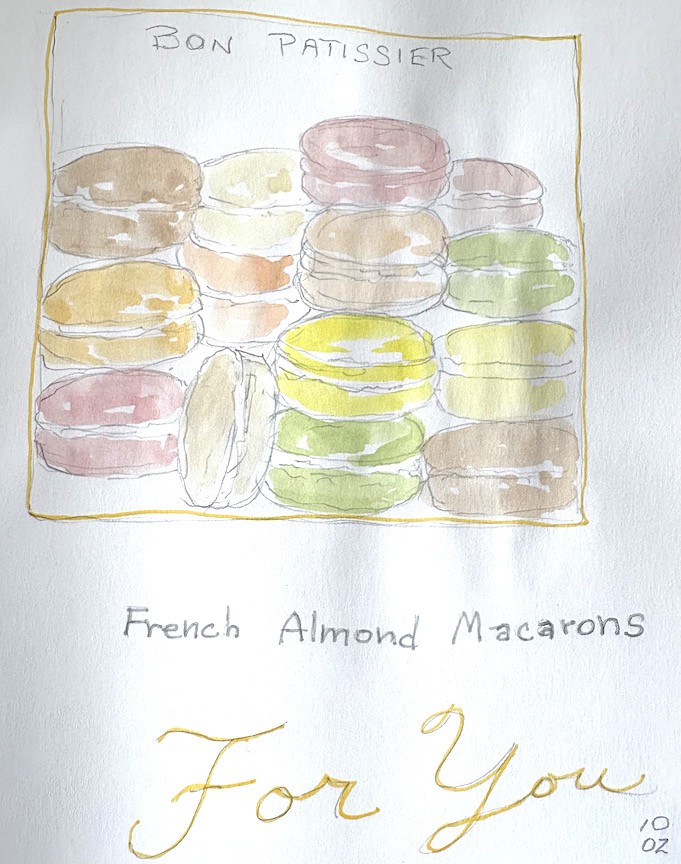 BON PATISSIER
French Almond Macarons
For You
10
OZ